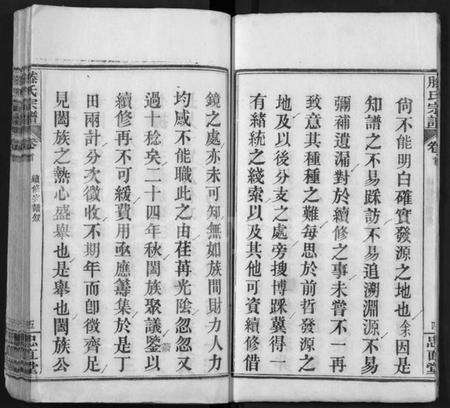 尙不能明白確實發源之地也余因是
知譜之不易踩訪不易追溯淵源不易
彌補遺漏對於續修之事未嘗不一再
致意其種種之難每思於前哲發源之
地及以後分支之處旁搜博踩冀得一
有緒統之綫索以及其他可資續修借
滕氏宗譜
卷首
四
忠直堂
鏡之處亦未可知無如族間財力人力
均咸不能職此之由荏苒光陰忽忽又
過十稔矣二十四年秋闔族聚議鑒以
續修再不可緩費用亟應籌集於是丁
田兩計分次徵收不期年而卽徵齊足
見闔族之熱心盛舉也是舉也闔族公
滕氏宗譜
卷首
五
忠直堂